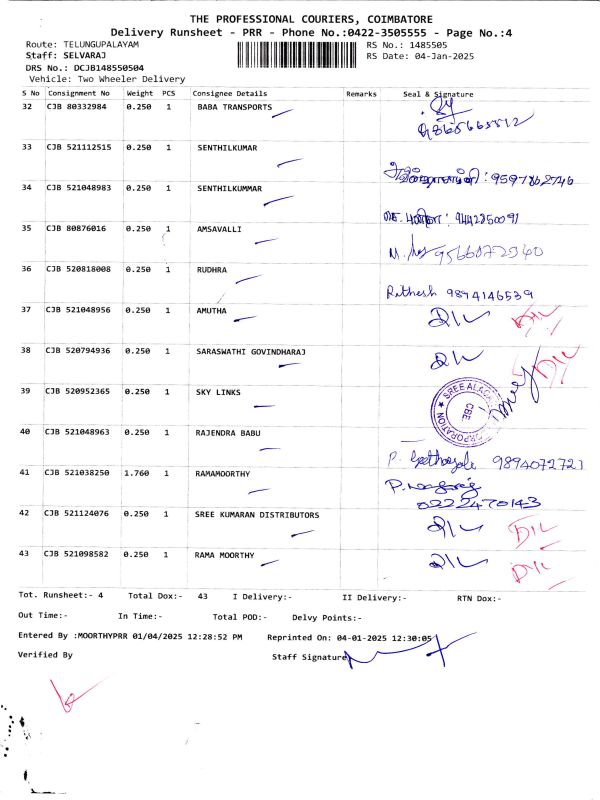 THE PROFESSIONAL COURIERS, COIMBATORE
Delivery Runsheet - PRR - Phone No.:0422-3505555 - Page No.:4
Route: TELUNGUPALAYAM RS No.: 1485505
Staff: SELVARAJ RS Date: 04-Jan-2025
DRS No.: DCJB148550504
Vehicle: Two Wheeler Delivery
S No Consignment No Weight PCS Consignee Details Remarks Seal & Signature
32 CJB 80332984 0.250 1 BABA TRANSPORTS
33 CJB 521112515 0.250 1 SENTHILKUMAR
34 CJB 521048983 0.250 1 SENTHILKUMMAR
35 CJB 80876016 0.250 1 AMSAVALLI
36 CJB 520818008 0.250 1 RUDHRA
Rithesh 9894146539
37 CJB 521048956 0.250 1 AMUTHA
38 CJB 520794936 0.250 1 SARASWATHI GOVINDHARAJ
39 CJB 520952365 0.250 1 SKY LINKS
40 CJB 521048963 0.250 1 RAJENDRA BABU
41 CJB 521038250 1.760 1 RAMAMOORTHY
42 CJB 521124076 0.250 1 SREE KUMARAN DISTRIBUTORS
43 CJB 521098582 0.250 1 RAMA MOORTHY
Tot. Runsheet:- 4 Total Dox:- 43 I Delivery:- II Delivery:- RTN Dox:-
Out Time:- In Time:- Total POD:- Delvy Points:-
Entered By :MOORTHYPRR 01/04/2025 12:28:52 PM Reprinted On: 04-01-2025 12:30:05
Verified By Staff Signature